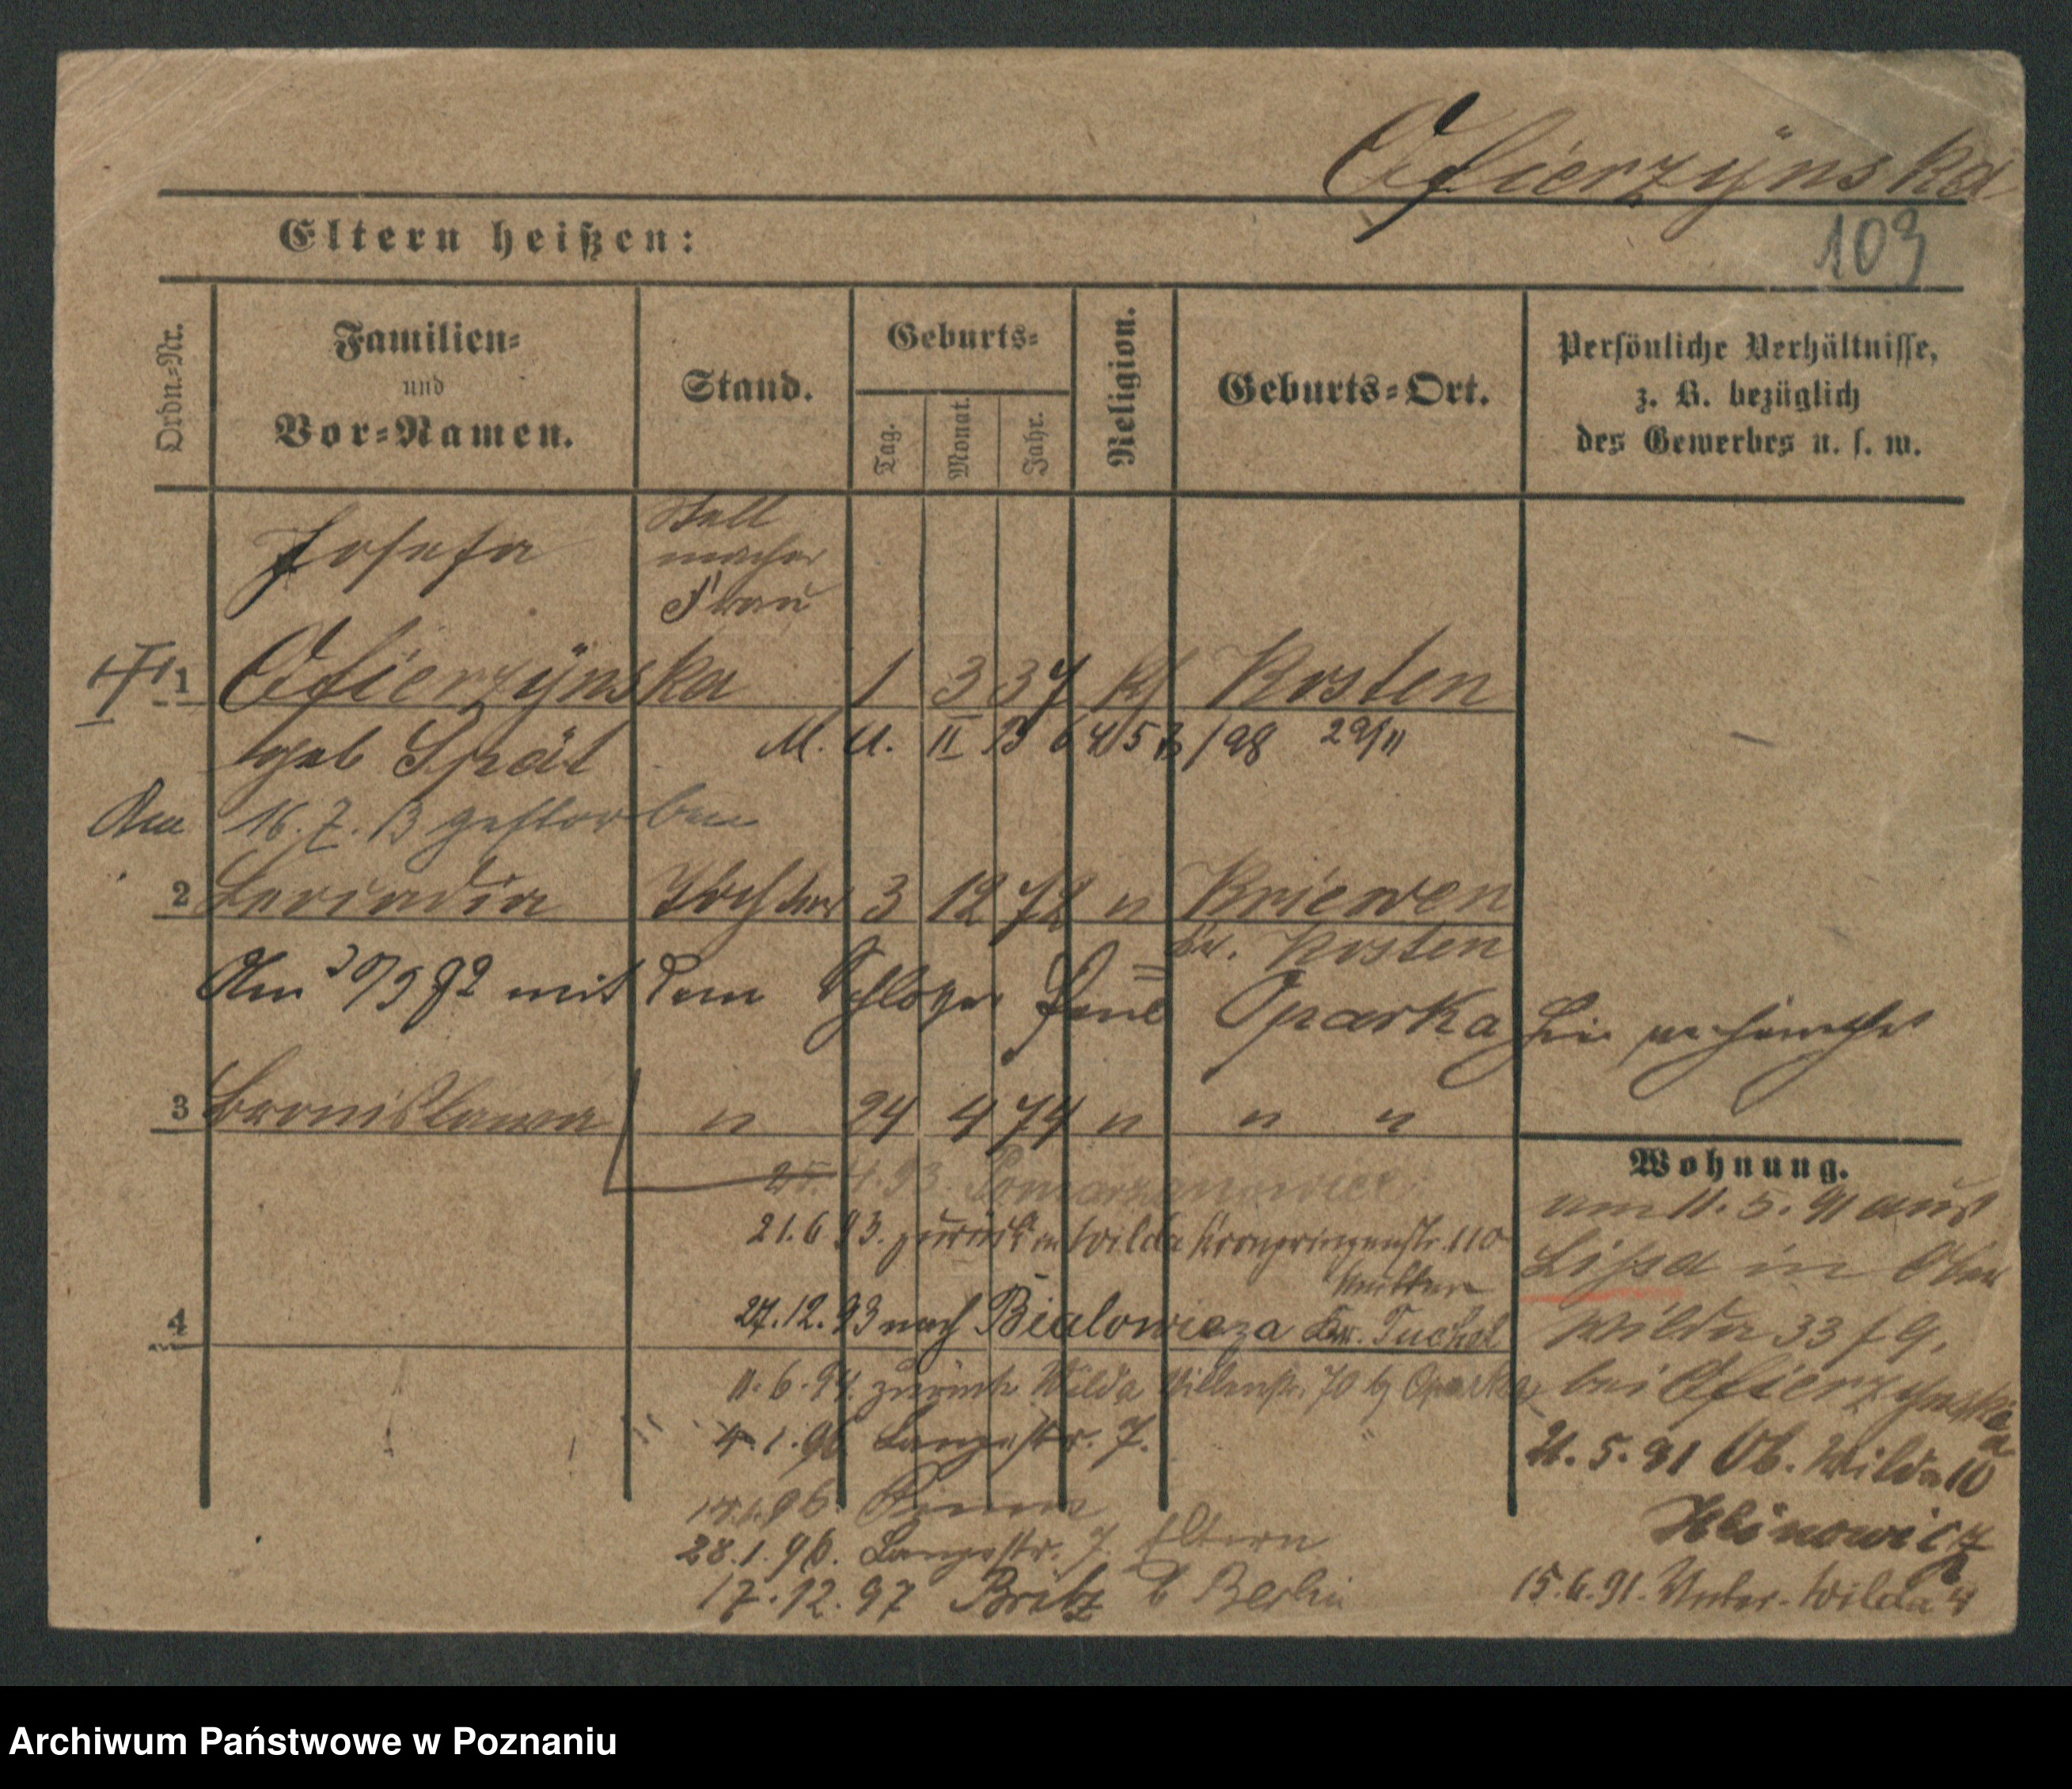 Ofierzÿnska
103
Eltern heißen:
Ordn.-Nr.
Familien-
und
Vor-Namen.
Stand.
Geburts-
Tag.
Monat.
Jahr.
Religion.
Geburts-Ort.
Persönliche Verhältnisse,
z. B. bezüglich
des Gewerbes u. s. w.
Josefa
Stell
macher
Frau
1 Ofierzÿnska 1 3 37 kf Kosten
geb Spät M. U. II B 6 /98 29/11
Am 16. 7. 13 gestorben
2 Leocadia Tochter 3 12 72 " Kriewen
Kr. Kosten
Am 30/9 92 mit dem Paul Oparka
3 Bronislawa " 24 4 74 " " "
4.93.
21.6.93. zurück Wilda Kronprinzenstr. 110
Mutter
27.12.93 nach Bialowieza Kr. Tuchel
4
11.6.94. zurück Wilda 70 b/ Oparka
4.1.96 Langestr. 7.
28.1.96. Langestr. 7. Eltern
17.12.97 Britz b Berlin
Wohnung.
am 11. 5. 91 aus
Lissa in Ober
Wilda 33 f 9.
bei Ofierzynska
21. 5. 91 Ob. Wilda 10
15.6.91. Unter-Wilda
Archiwum Państwowe w Poznaniu